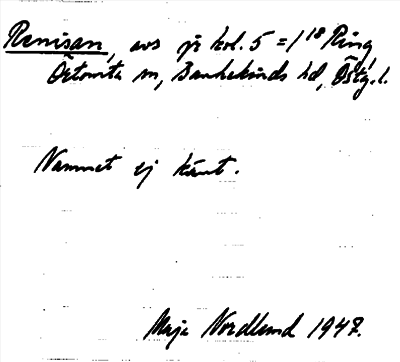 Renisan, avs på kol. 5 = 1/18 Ring
Örtomta sn, Bankekinds hd, Östg.l.
Namnet ej känt.
Maja Nordlund 1947.